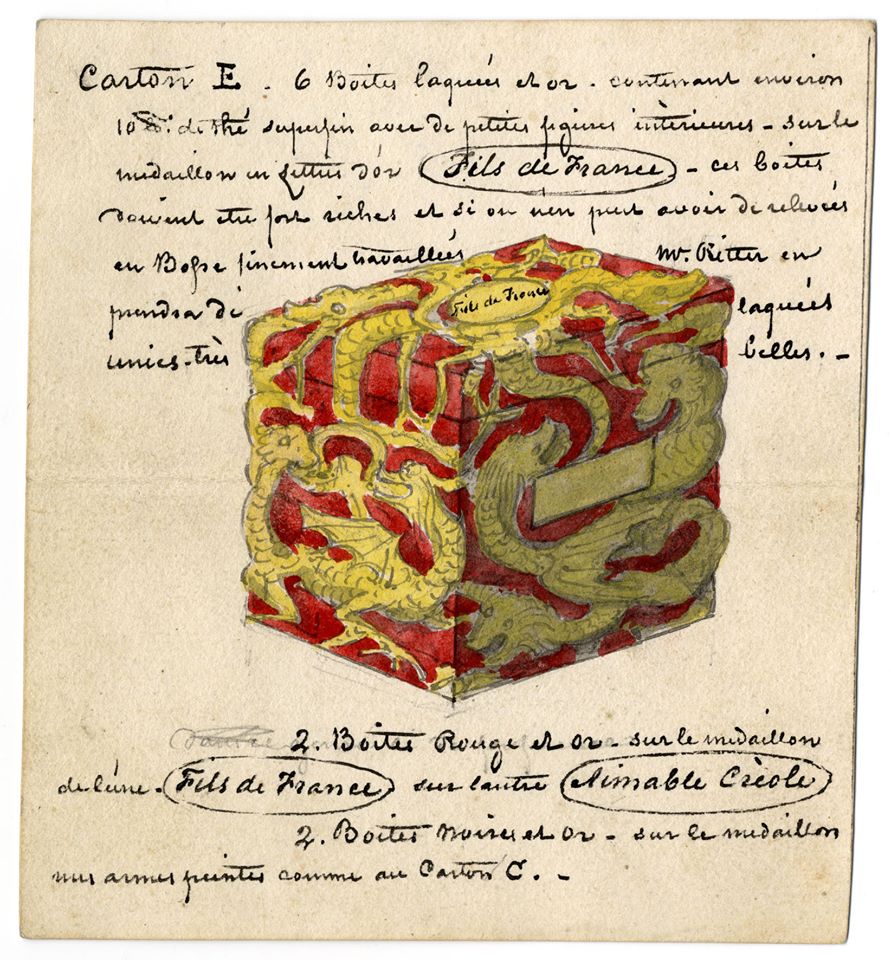 Carton E. 6 Boites laquées et or - contenant environ
10 de thé superfin avec de petites figures intèrieures - sur le
medaillon en lettres d'or Fils de France - ces boites
doivent etre fort riches et si on n'en peut avoir de relevées
en Bosse finement travaillées Mr. Ritter en
prendra de laquées
unies très belles. -
Fils de France
2. Boites Rouge et or - sur le medaillon
de l'une - Fils de France sur l'autre Aimable Crèole
2. Boites noires et or - sur le medaillon
nus armes peintes comme au Carton C. -